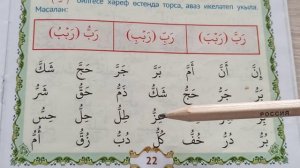 билгесе хәреф өстендә торса, аваз икеләтеп укыла.
Мәсәлән:
رَبَّ (رَبْبَ) رَبِّ (رَبْبِ) رَبُّ (رَبْبُ)
إِنَّ أَنَّ أَمَّ بَرَّ جَرَّ حَجَّ شَكَّ
بَرُّ جَرُّ حَجُّ شَكُّ ذَمُّ حَقُّ شَرُّ
РОССИЯ
بِرُّ دُرُّ خُفُّ كُلُّ دُبُّ زُقُّ أُمُّ
22